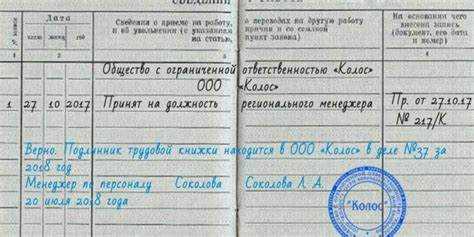 СВЕДЕНИЯ О РАБОТЕ
№ записи
Дата
число
месяц
год
Сведения о приеме на работу, о переводах на другую работу
и об увольнении (с указанием причин и со ссылкой
на статью, пункт закона)
На основании чего
внесена запись
(документ, его дата
и номер)
1 2 3 4
Общество с ограниченной ответственностью «Колос»
ООО «Колос»
1 27 10 2017 Принят на должность регионального менеджера Пр. от 27.10.17
№ 217/К
Верно. Подлинник трудовой книжки находится в ООО «Колос» в деле №37 за
2018 год
Менеджер по персоналу Соколова Соколова Л. А.
20 июля 2018 года
"Колос"